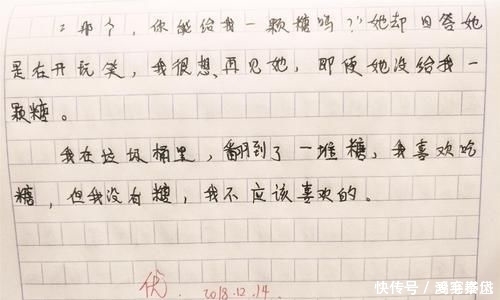 ：那个，你能给我一颗糖吗？”她却回答她
是在开玩笑，我很想再见她，即便她没给我一
颗糖。
我在垃圾桶里，翻到了一堆糖，我喜欢吃
糖，但我没有糖，我不应该喜欢的。
优 2018.12.14
快传号／